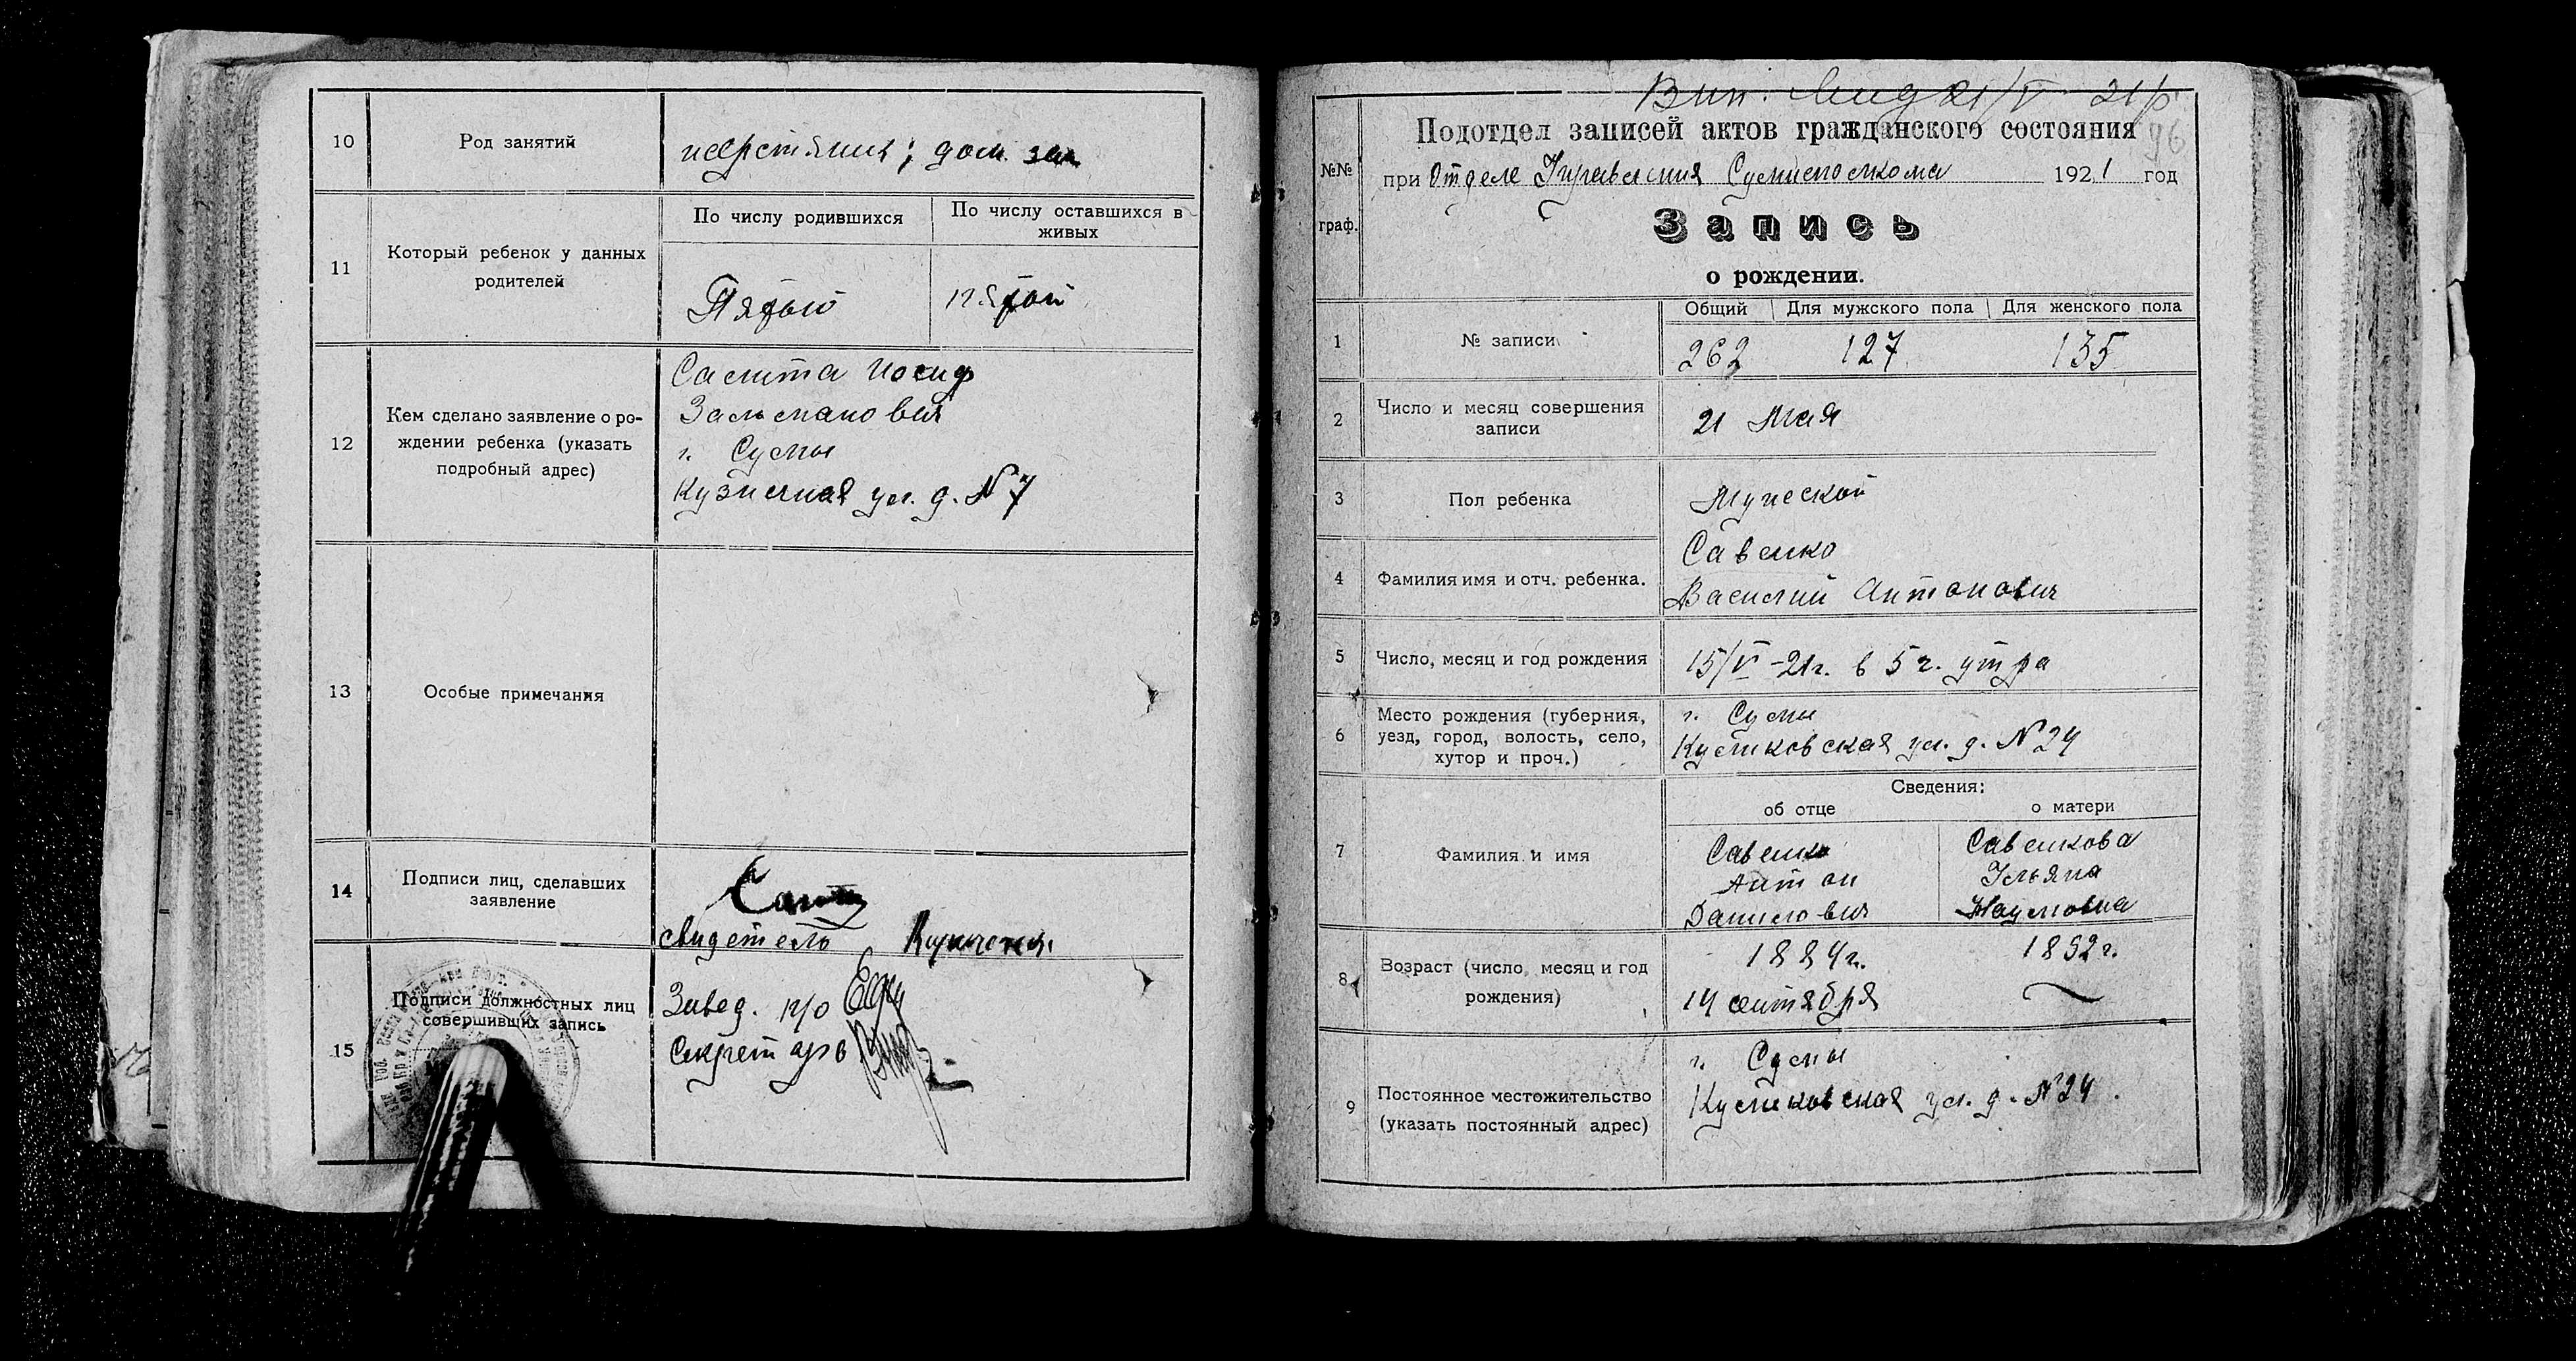 10
Род занятий
дом. зан
11
Который ребенок у данных
родителей
По числу родившихся
По числу оставшихся в
живых
Пятый
пятый
12
Кем сделано заявление о ро-
ждении ребенка (указать
подробный адрес)
Иосиф
Зальманович
г. Сумы
Кузнечная ул. д. № 7
13
Особые примечания
14
Подписи лиц, сделавших
заявление
свидетель
15
Подписи должностных лиц
совершивших запись
Завед. п/о
Секретарь
21/V 21
96
Подотдел записей актов гражданского состояния
№№
граф.
при Отделе Управления Сумисполкома 1921 год
Запись
о рождении.
1
№ записи
Общий
Для мужского пола
Для женского пола
262 127 135
2
Число и месяц совершения
записи
21 Мая
3
Пол ребенка
Мужской
4
Фамилия имя и отч. ребенка.
Савенко
Василий Антонович
5
Число, месяц и год рождения
15/V -21г. в 5 ч. утра
6
Место рождения (губерния,
уезд, город, волость, село,
хутор и проч.)
г. Сумы
Куликовская ул. д. № 24
Сведения:
об отце
о матери
7
Фамилия и имя
Савенко
Антон
Данилович
Савенкова
Ульяна
Наумовна
8
Возраст (число, месяц и год
рождения)
1884 г.
14 сентября
1892 г.
9
Постоянное местожительство
(указать постоянный адрес)
г. Сумы
Куликовская ул. д. № 24.